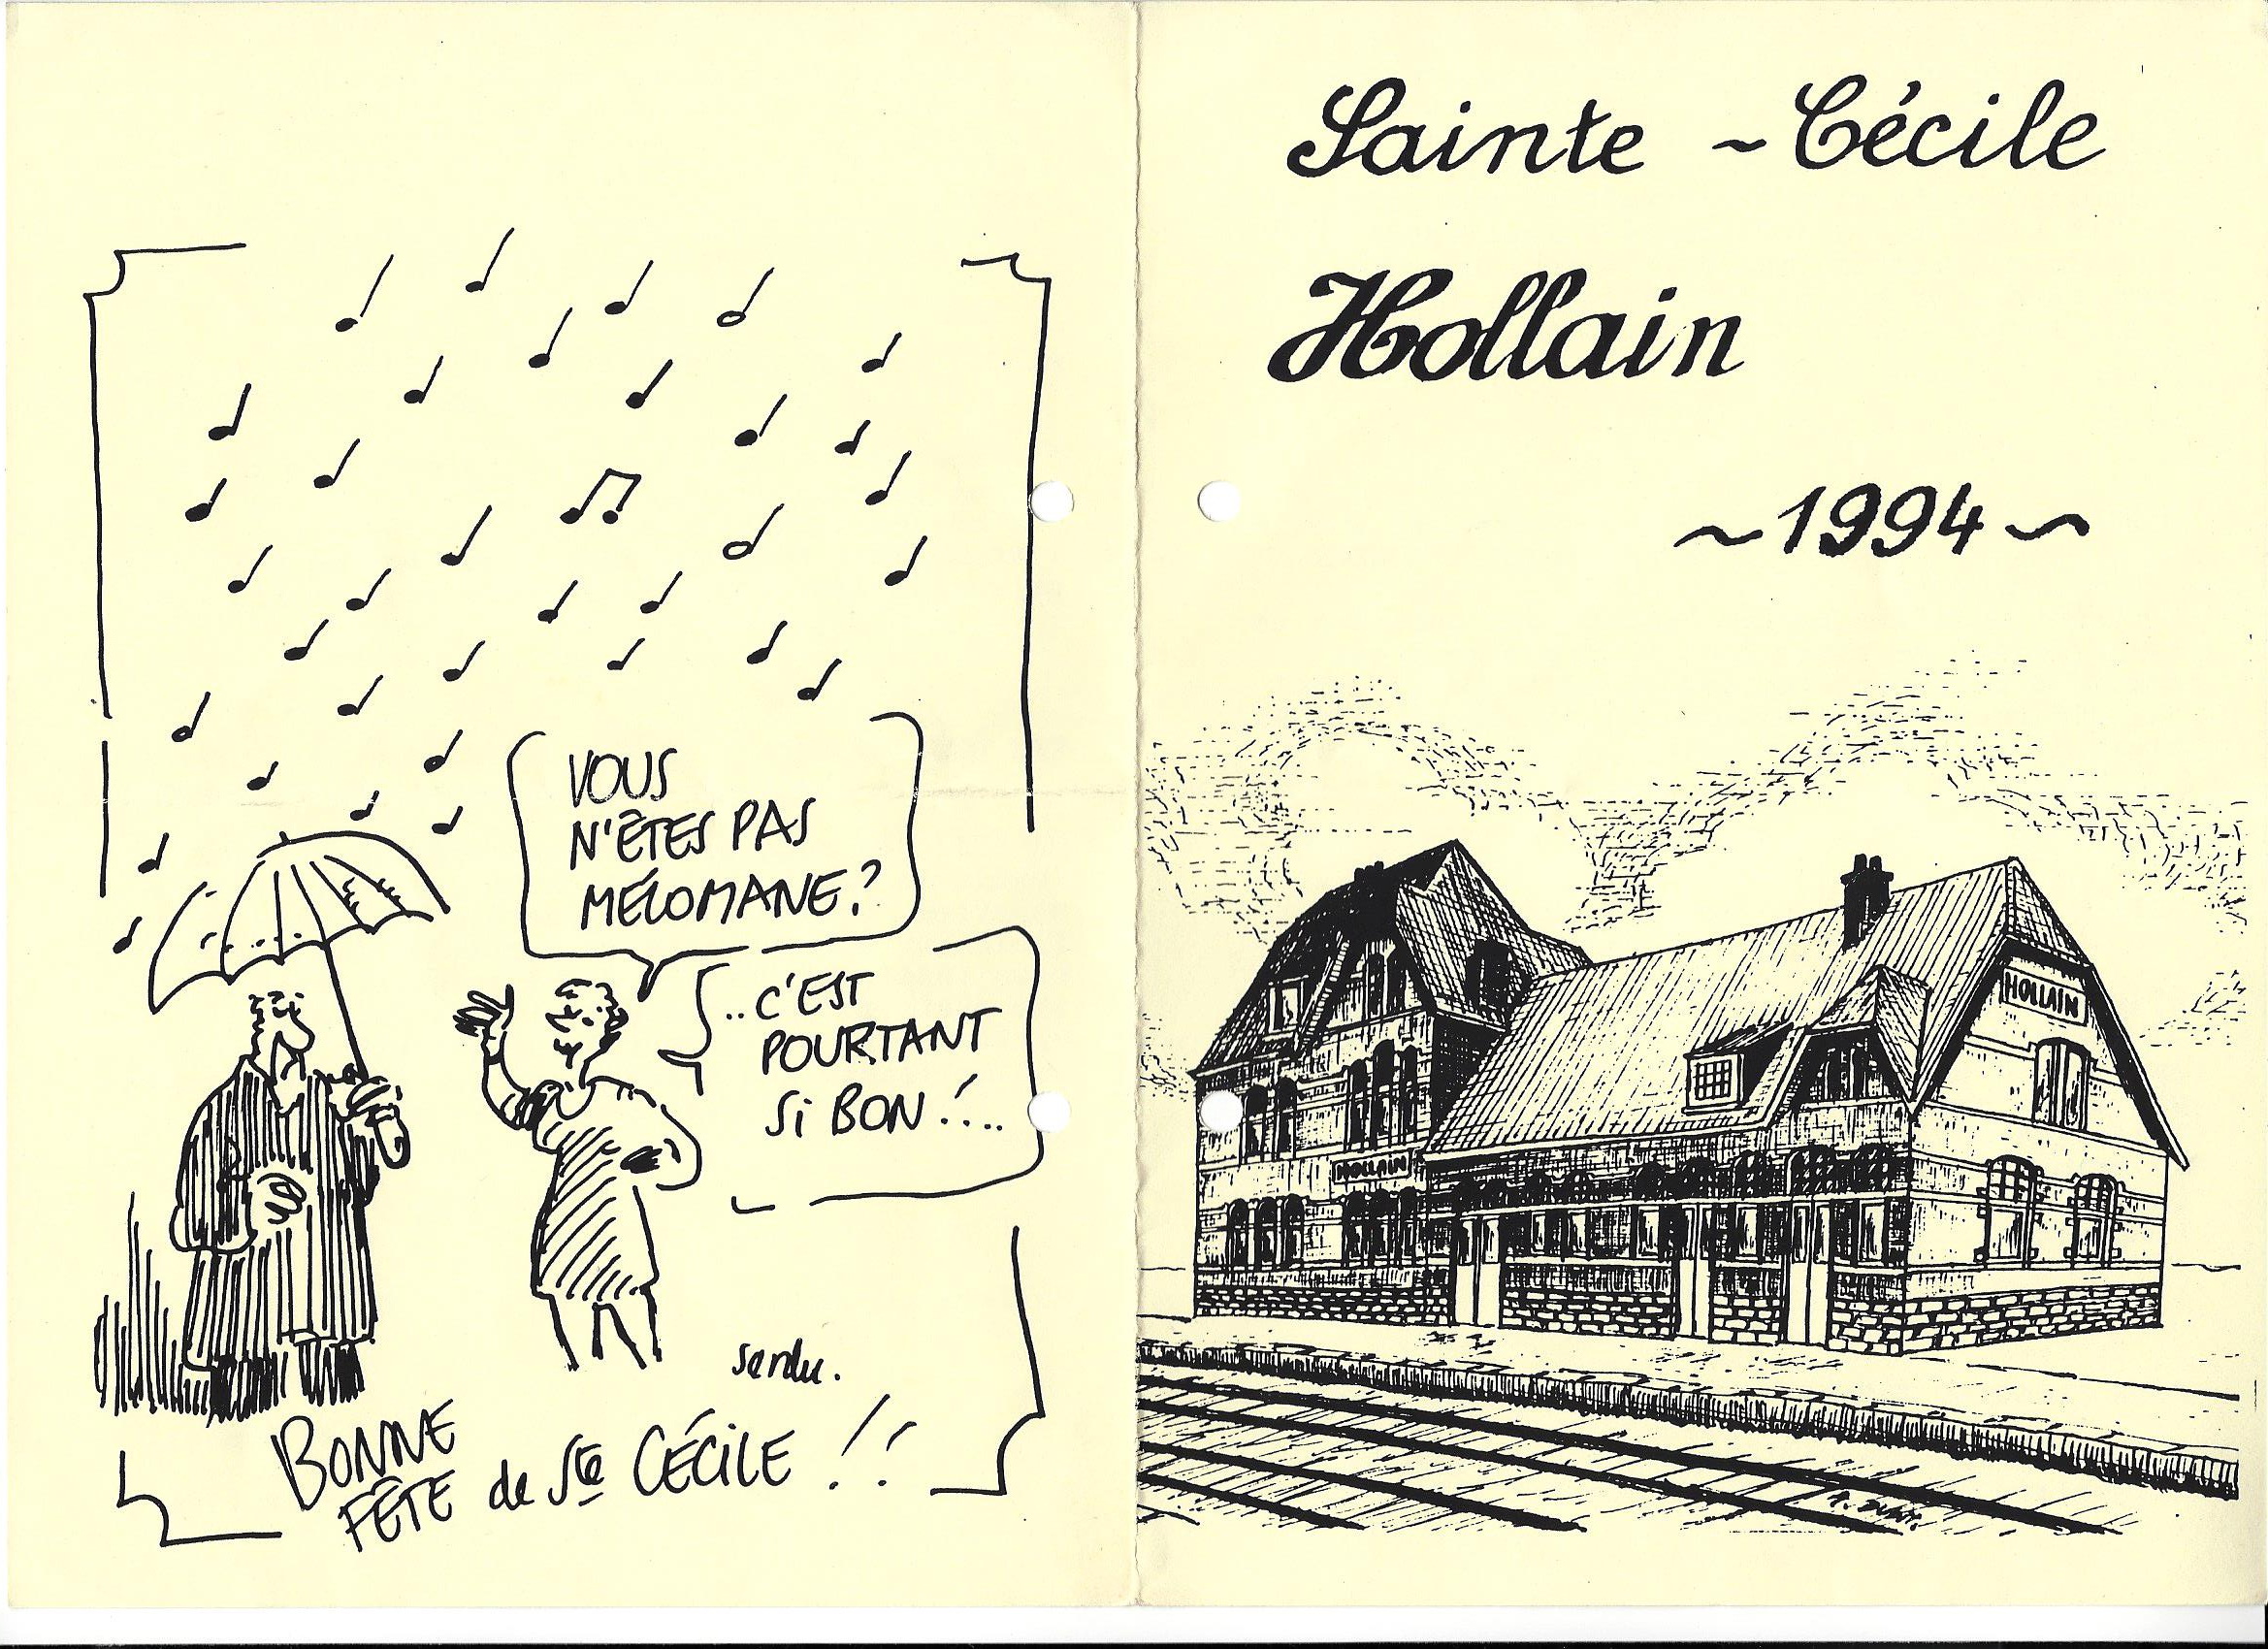 VOUS
N'ÊTES PAS
MÉLOMANE?
..C'EST
POURTANT
Si BON!...
serdu.
BONNE
FÊTE de Ste CÉCILE !!
Sainte ~ Cécile
Hollain
~1994~
HOLLAIN
HOLLAIN